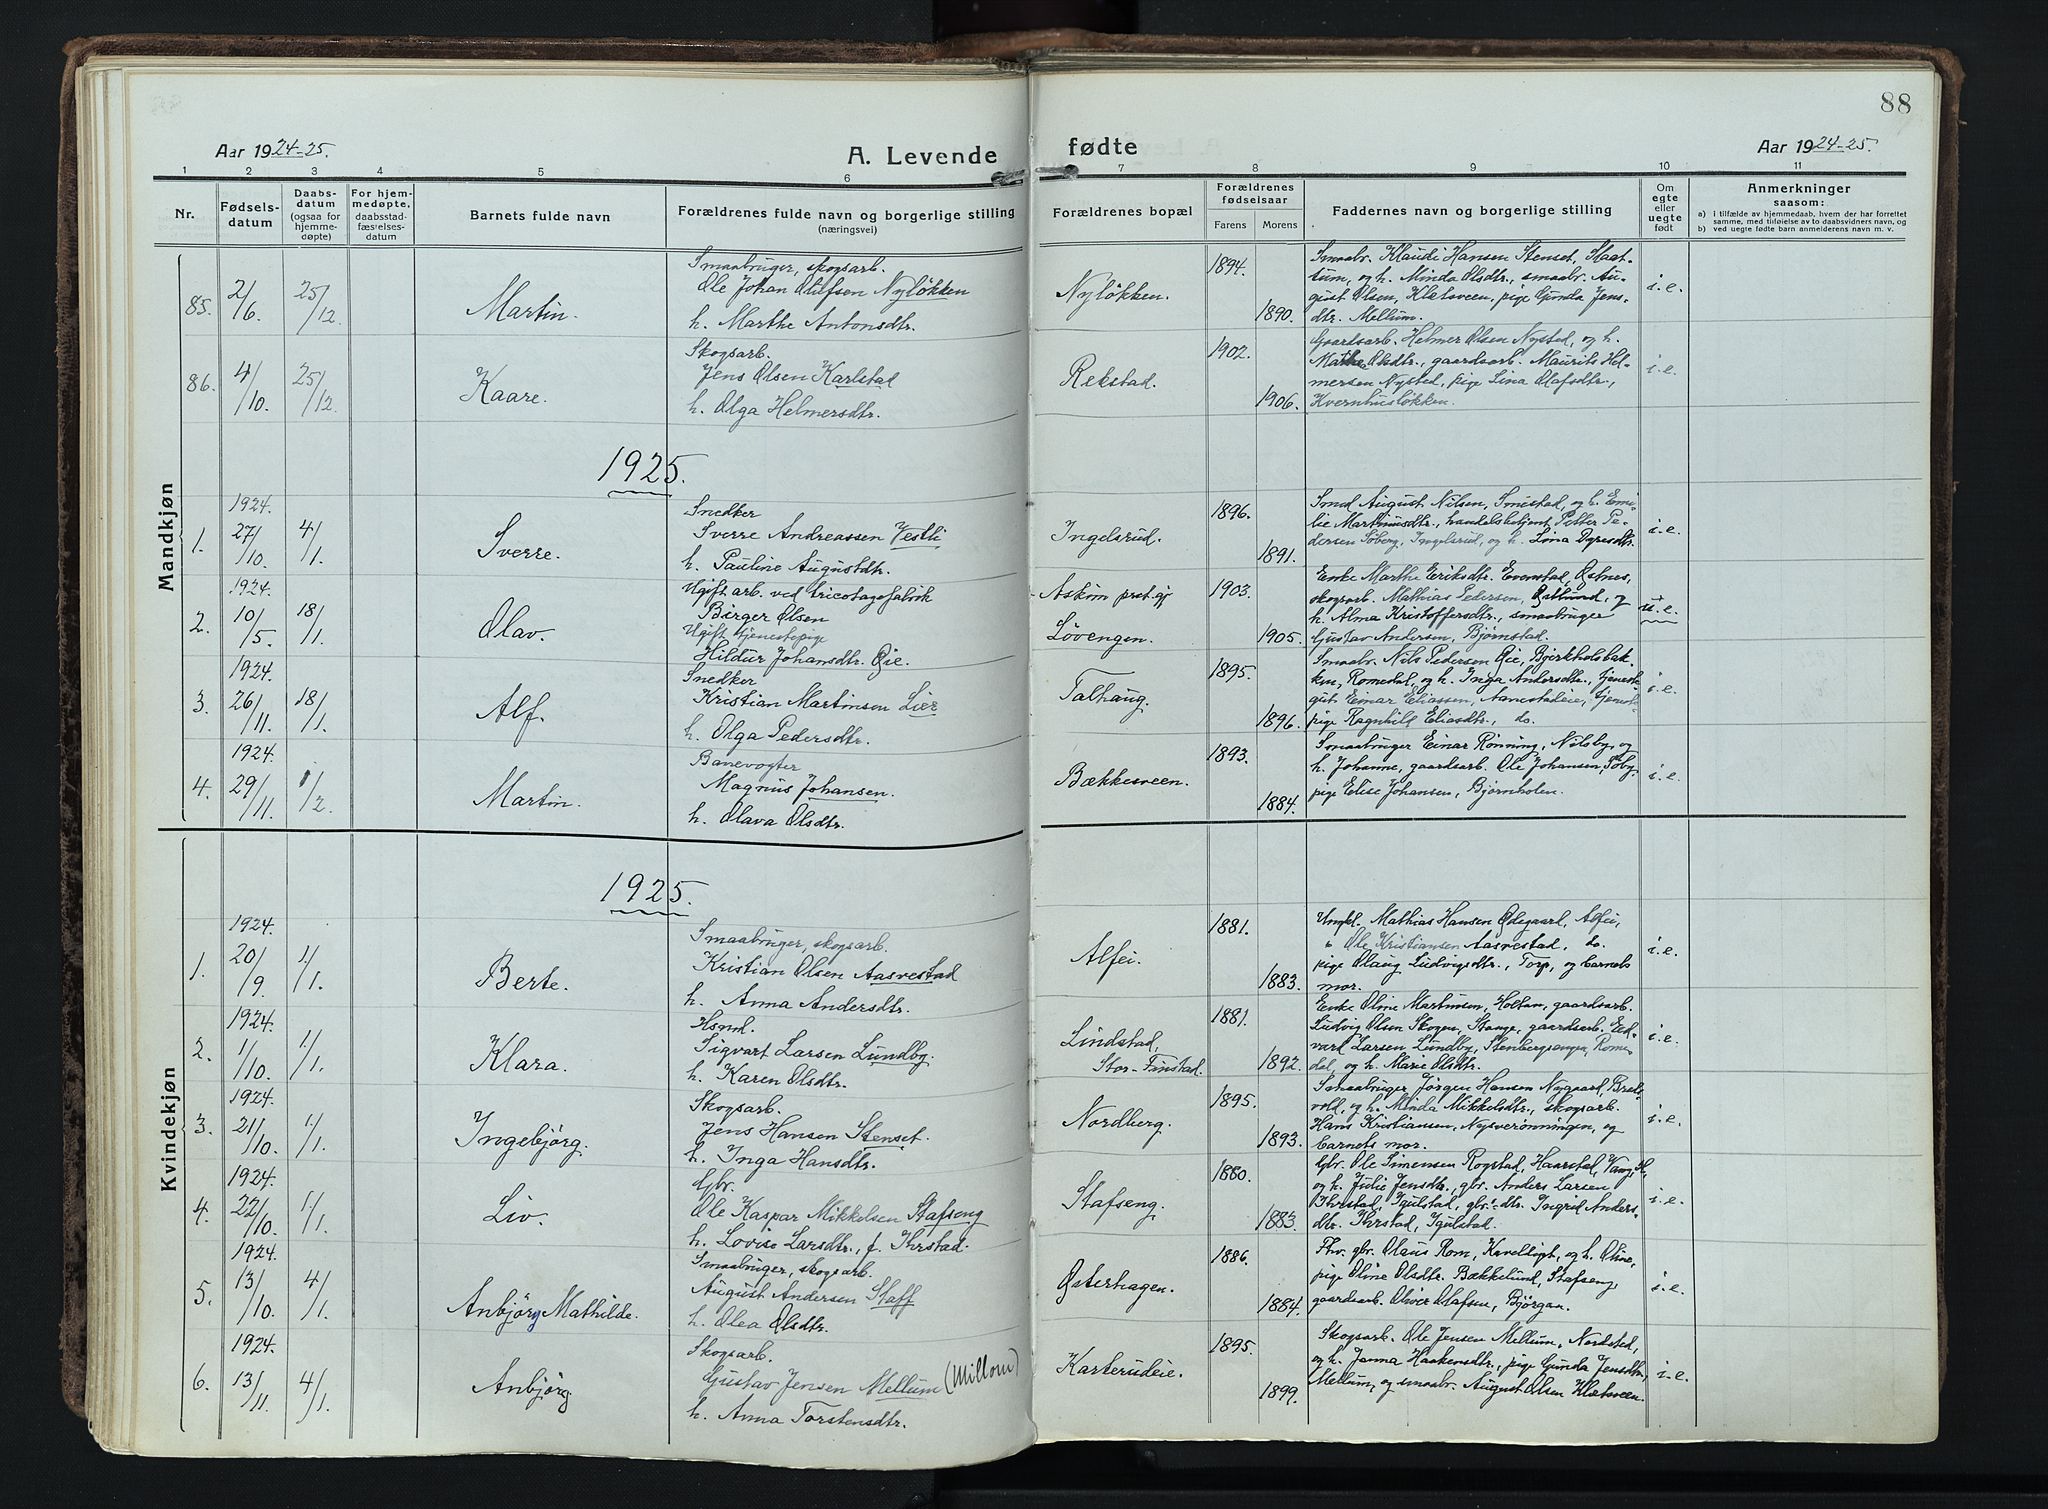 88
Aar 1924-25.
A. Levende fødte
Aar 1924-25.
1 2 3 4 5 6 7 8 9 10 11
Nr.
Fødsels-
datum
Daabs-
datum
(ogsaa for
hjemme-
døpte)
For hjem-
medøpte,
daabsstad-
fæstelses-
datum
Barnets fulde navn
Forældrenes fulde navn og borgerlige stilling
(næringsvei)
Forældrenes bopæl
Forældrenes
fødselsaar
Farens Morens
Faddernes navn og borgerlige stilling
Om
egte
eller
uegte
født
Anmerkninger
saasom:
a) i tilfælde av hjemmedaab, hvem der har forrettet
samme, med tilføielse av to daabsvidners navn, og
b) ved uegte fødte barn anmelderens navn m. v.
Mandkjøn
85. 2/6. 25/12. Martin.
Smaabruger, skogsarb.
Ole Johan Olufsen Nyløkken
h. Marthe Antonsdtr.
Nyløkken.
1894.
1890.
Smaabr. Klaudi Hansen Stenset, Slaat-
tum, og h. Minda Olsdtr., smaabr. Au-
gust Olsen, Kletsveen, pige Gunda Jens-
dtr. Mellum.
i.e.
86. 4/10. 25/12 Kaare.
Skogsarb.
Jens Olsen Karlstad
h. Olga Helmersdtr.
Rekstad.
1902.
1906.
Gaardsarb. Helmer Olsen Nystad, og h.
Mathe Olsdtr., gaardsarb. Maurits Hel-
mersen Nystad, pige Lina Olafsdtr.,
Kvernhusløkken.
i.e.
1925.
1924.
1. 27/10. 4/1. Sverre.
Snedker
Sverre Andreassen Vestli
h. Pauline Augustdtr.
Ingelsrud.
1896.
1891.
Smed August Nilsen, Smestad, og h. Emi-
lie Martinusdtr., handelsbetjent Petter Pe-
dersen Søberg, Ingelsrud, og h. Lina Dyresdtr.
i.e.
1924.
2. 10/5. 18/1. Olav.
Ugift arb. ved tricotagefabrik
Birger Olsen
Ugift tjenestepige
Hildur Johansdtr. Øie.
Askim prest.gj
Løvengen.
1903.
1905.
Enke Marthe Eriksdtr. Evenstad, Østnes,
skogsarb. Mathias Pedersen, Østlund, og
h. Alma Kristoffersdtr., smaabruger
Gustav Andersen, Bjørnstad.
u.e.
1924.
3. 26/11. 18/1. Alf.
Snedker
Kristian Martinsen Lier
h. Olga Pedersdtr.
Talhaug.
1895.
1896.
Smaabr. Nils Pedersen Øie, Bjerkholsbak-
ken, Romedal, og h. Inga Andersdtr., tjeneste-
gut Einar Eliassen, Aanestadeie, tjeneste-
pige Ragnhild Eliasdtr., do.
i.e.
1924.
4. 29/11. 1/2. Martin.
Banevogter
Magnus Johansen.
h. Olava Olsdtr.
Bækkesveen.
1893.
1884.
Smaabruger Einar Rønning, Nilsby, og
h. Johanne, gaardsarb. Ole Johansen, Søby,
pige Elise Johansen, Bjørnholen.
i.e.
Kvindekjøn
1925.
1924.
1. 20/9. 1/1. Berte.
Smaabruger, skogsarb.
Kristian Olsen Aasvestad
h. Anna Andersdtr.
Alfei.
1881.
1883.
Ungkl. Mathias Hansen Ødegaard, Alfei,
Ole Kristiansen Aasvestad, do.
pige Olaug Ludvigsdtr., Torp, og barnets
mor.
i.e.
1924.
2. 1/10. 1/1. Klara.
Hsmd.
Sigvart Larsen Lundby.
h. Karen Olsdtr.
Lindstad,
Stor-Finstad.
1881.
1892.
Enke Oline Martinsen, Holtan, gaardsarb.
Ludvig Olsen Skogen, Stange, gaardsarb. Ed-
vard Larsen Lundby, Stenbergsengen, Rome-
dal, og h. Marie Olsdtr.
i.e.
1924.
3. 21/10. 1/1. Ingebjørg.
Skogsarb.
Jens Hansen Stenset.
h. Inga Hansdtr.
Nordberg.
1895.
1893.
Smaabruger Jørgen Hansen Nygaard, Bred-
vold, og h. Minda Mikkelsdtr., skogsarb.
Hans Kristiansen, Nysverønningen, og
barnets mor.
i.e.
1924.
4. 22/10. 1/1. Liv.
Gbr.
Ole Kaspar Mikkelsen Stafseng
h. Lovise Larsdtr., f. Ihrstad.
Stafseng.
1880.
1883.
Gbr. Ole Simensen Rogstad, Haarstad, Vang, H,
og h. Julie Jensdtr., gbr. Anders Larsen
Ihrstad, Igulstad, gbr.-dtr. Ingrid Anders-
dtr. Ihrstad, Igulstad.
i.e.
1924.
5. 13/10. 4/1. Anbjørg Mathilde.
Smaabruger, skogsarb.
August Andersen Staff
h. Olea Olsdtr.
Østerhagen.
1886.
1884.
Fhv. gbr. Olaus Rom, og h. Oline,
pige Oline Olsdtr. Bækkelund, Stafseng,
gaardsarb. Oliver Olafsen, Bjørgan.
i.e.
1924.
6. 13/11. 4/1. Anbjørg
Skogsarb.
Gustav Jensen Mellum (Millom)
h. Anna Torstensdtr.
Karterudeie.
1895.
1899.
Skogsarb. Ole Jensen Mellum, Nordsted,
og h. Janna Haakensdtr., pige Gunda Jensdtr.
Mellum, og smaabr. August Olsen Kletsveen.
i.e.